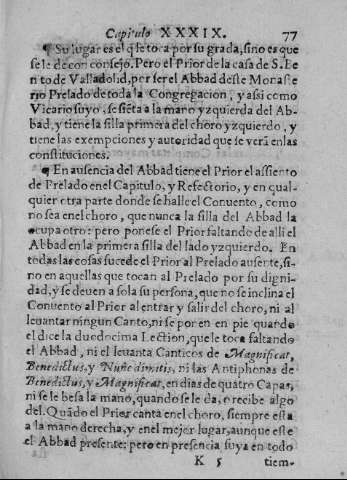 Capitulo XXXIX. 77
¶ Su lugar es el q̃ le toca por su grada, sino es que
se le de con consejo. Pero el Prior de la casa de S. Be
nito de Valladolid, por ser el Abbad deste Monaste
rio Prelado de toda la Congregacion, y assi como
Vicario suyo, se siẽta a la mano yzquierda del Ab-
bad, y tiene la silla primera del choro yzquierdo, y
tiene las exempciones y autoridad que se verà en las
constituciones.
¶ En ausencia del Abbad tiene el Prior el assiento
de Prelado en el Capitulo, y Refectorio, y en qual-
quier otra parte donde se halle el Conuento, como
no sea en el choro, que nunca la silla del Abbad la
ocupa otro: pero ponese el Prior faltando de alli el
Abbad en la primera silla del lado yzquierdo. En
todas las cosas sucede el Prior al Prelado ausente, si-
no en aquellas que tocan al Prelado por su digni-
dad, y se deuen a sola su persona, que no se inclina el
Conuento al Prior al entrar y salir del choro, ni al
leuantar ningun Canto, ni se ponen en pie quando
el dice la duodocima Lection, que le toca faltando
el Abbad, ni el leuanta Canticos de Magnificat,
Benedictus, y Nunc dimitis, ni las Antiphonas de
Benedictus, y Magnificat, en dias de quatro Capas,
ni se le besa la mano, quando se le da, o recibe algo
del. Quãdo el Prior canta en el choro, siempre esta
a la mano derecha, y en el mejor lugar, aunque este
el Abbad presente: pero en presencia suya en todo
K 5 tiem-